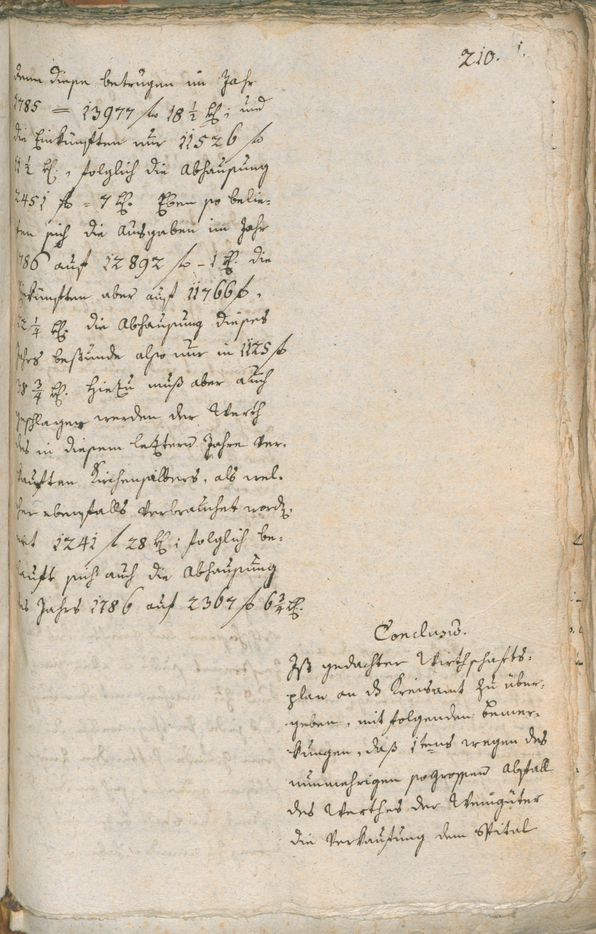 210.
denn diese betrugen im Jahr
1785 = 13977 f 18 1/2 xr; und
die Einkünften nur 11526 f
11 1/2 xr., folglich die Abhausung
2451 f = 7 xr. Eben so belie-
fen sich die Ausgaben im Jahr
1786 auf 12892 f – 1 xr. die
Einkünften aber auf 11766 f,
22 1/4 xr. die Abhausung dieses
Jahrs bestunde also nur in 1125 f
38 3/4 xr. Hiezu muß aber auch
geschlagen werden der Werth
des in diesem letztern Jahre ver-
kauften Kirchensilbers, als wel-
cher ebenfalls verbrauchet word.
mit 1241 f 28 xr; folglich be-
lauft sich auch die Abhausung
des Jahrs 1786 auf 2367 f 6 3/4 xr.
Conclusum.
Ist gedachter Wirthschafts-
plan an ds Kreisamt zu über-
geben, mit folgenden Bemer-
kungen, daß 1tens wegen des
nunmehrigen so grossen Abfall
des Werthes der Weingüter
die Verkaufung dem Spital